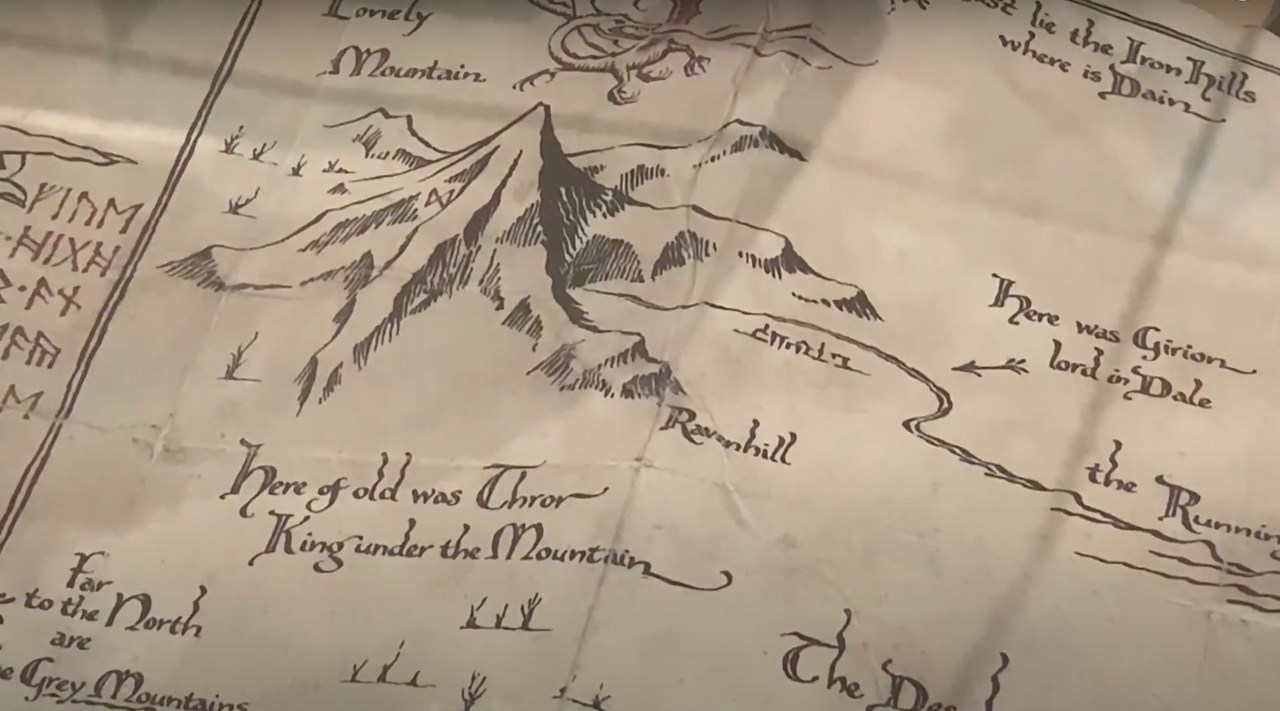 Lonely
Mountain
lie the Iron Hills
where is
Dain
ᛞ
ᚠᛁᚢᛖ
ᚻᛁᚷᚻ
ᚪᚾ
Here was Girion
lord in Dale
Ravenhill
the Runnin
Here of old was Thror
King under the Mountain
Far
to the North
are
Grey Mountains
The Des